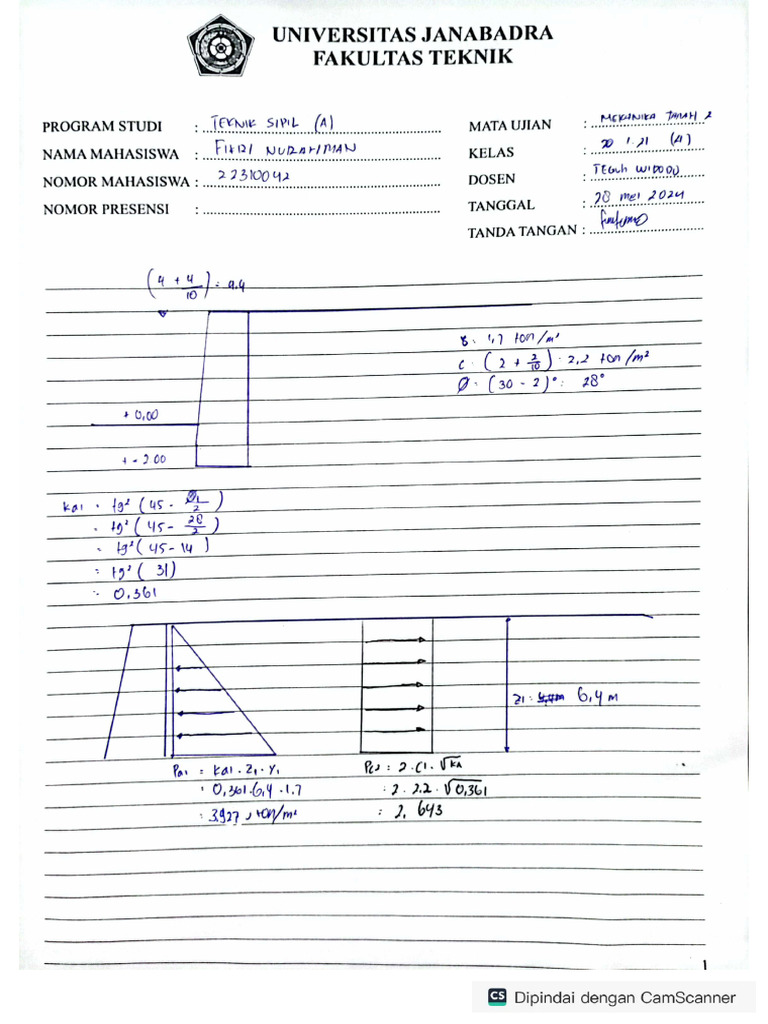 UNIVERSITAS JANABADRA
FAKULTAS TEKNIK
PROGRAM STUDI : TEKNIK SIPIL (A)
NAMA MAHASISWA : FIKRI NURAHMAN
NOMOR MAHASISWA : 22310042
NOMOR PRESENSI :
MATA UJIAN : MEKANIKA TANAH 2
KELAS : 1.21 (A)
DOSEN : TEGUH WIDODO
TANGGAL : 28 Mei 2024
TANDA TANGAN :
(4 + 4/10) = 4.4
γ = 1,7 ton/m³
C = (2 + 2/10) = 2,2 ton/m²
Ø = (30 - 2)° = 28°
+ 0,00
+ - 2.00
Ka1 = tg² (45 - Ø1/2)
= tg² (45 - 28/2)
= tg² (45 - 14)
= tg² (31)
= 0,361
Z1 = 6,4 m
Pa1 = Ka1 . Z1 . γ1
= 0,361 . 6,4 . 1.7
= 3.927 ton/m²
Pc1 = 2 . C1 . √Ka
= 2 . 2.2 . √0,361
= 2,643
1
CS Dipindai dengan CamScanner